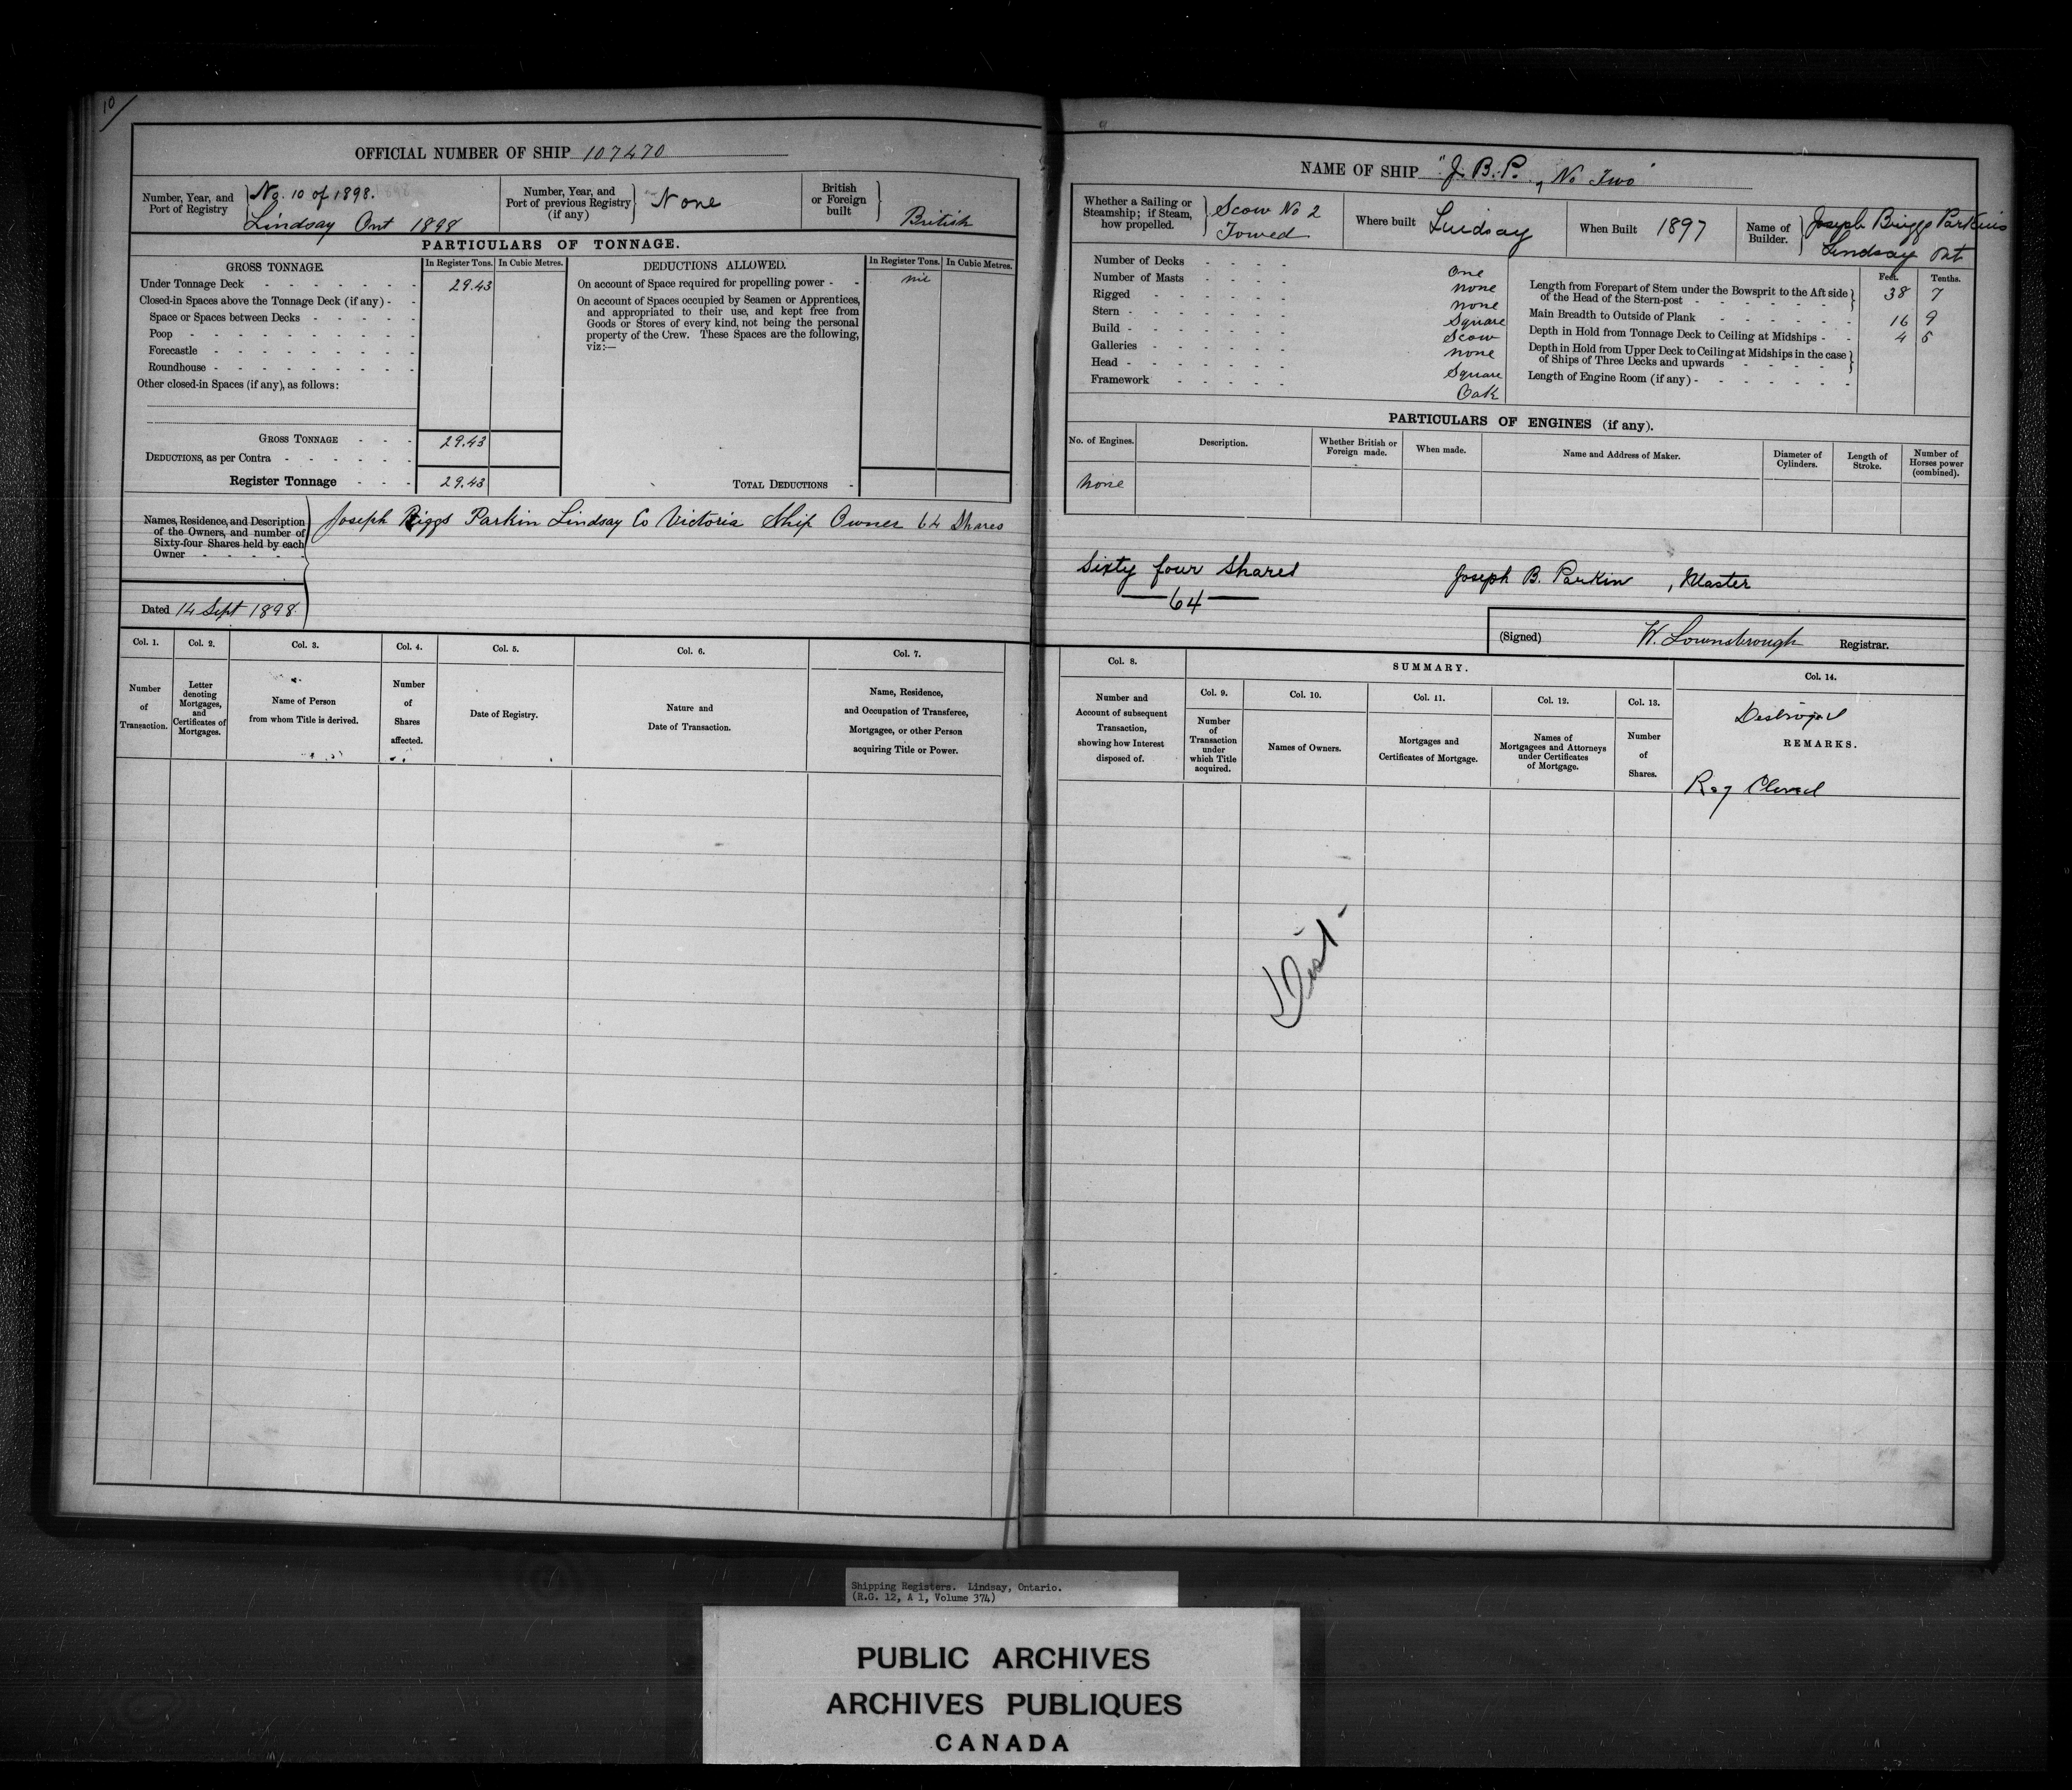 10/
OFFICIAL NUMBER OF SHIP 107470
Number, Year, and Port of Registry } No. 10 of 1898. Lindsay Ont 1898
Number, Year, and Port of previous Registry (if any) } None
British or Foreign built } British
PARTICULARS OF TONNAGE.
GROSS TONNAGE. In Register Tons. In Cubic Metres. DEDUCTIONS ALLOWED. In Register Tons. In Cubic Metres.
Under Tonnage Deck - - - - - - 29.43
Closed-in Spaces above the Tonnage Deck (if any) - -
Space or Spaces between Decks - - - - -
Poop - - - - - - - -
Forecastle - - - - - - - -
Roundhouse - - - - - - - -
Other closed-in Spaces (if any), as follows:
GROSS TONNAGE - - - 29.43
DEDUCTIONS, as per Contra - - - - - - 29.43
Register Tonnage - - - 29.43
On account of Space required for propelling power - - nil
On account of Spaces occupied by Seamen or Apprentices,
and appropriated to their use, and kept free from
Goods or Stores of every kind, not being the personal
property of the Crew. These Spaces are the following,
viz:—
TOTAL DEDUCTIONS -
Names, Residence, and Description
of the Owners, and number of
Sixty-four Shares held by each
Owner - - - - -
Joseph Riggs Parkin Lindsay Co Victoria Ship Owner 64 Shares
Dated 14 Sept 1898.
Col. 1. Col. 2. Col. 3. Col. 4. Col. 5. Col. 6. Col. 7.
Number of Transaction.
Letter denoting Mortgages, and Certificates of Mortgages.
Name of Person from whom Title is derived.
Number of Shares affected.
Date of Registry.
Nature and Date of Transaction.
Name, Residence, and Occupation of Transferee, Mortgagee, or other Person acquiring Title or Power.
NAME OF SHIP "J. B. P., No Two"
Whether a Sailing or Steamship; if Steam, how propelled. } Scow No 2 Towed
Where built Lindsay
When Built 1897
Name of Builder. } Joseph Briggs Parkins Lindsay Ont
Number of Decks - - - - One
Number of Masts - - - - none
Rigged - - - - - none
Stern - - - - - - Square
Build - - - - - - Scow
Galleries - - - - - none
Head - - - - - - Square
Framework - - - - - Oak
Feet. Tenths.
Length from Forepart of Stem under the Bowsprit to the Aft side
of the Head of the Stern-post - - - - - - - } 38 7
Main Breadth to Outside of Plank - - - - - - 16 9
Depth in Hold from Tonnage Deck to Ceiling at Midships - - 4
Depth in Hold from Upper Deck to Ceiling at Midships in the case
of Ships of Three Decks and upwards - - - - }
Length of Engine Room (if any) - - - - - - -
PARTICULARS OF ENGINES (if any).
No. of Engines. Description. Whether British or Foreign made. When made. Name and Address of Maker. Diameter of Cylinders. Length of Stroke. Number of Horses power (combined).
none
Sixty four Shares
64
Joseph B. Parkin , Master
(Signed) W. Lownsbrough Registrar.
SUMMARY.
Col. 8. Col. 9. Col. 10. Col. 11. Col. 12. Col. 13. Col. 14.
Number and Account of subsequent Transaction, showing how Interest disposed of.
Number of Transaction under which Title acquired.
Names of Owners.
Mortgages and Certificates of Mortgage.
Names of Mortgagees and Attorneys under Certificates of Mortgage.
Number of Shares.
Destroyed
REMARKS.
Reg Closed
Shipping Registers. Lindsay, Ontario.
(R.G. 12, A 1, Volume 374)
PUBLIC ARCHIVES
ARCHIVES PUBLIQUES
CANADA